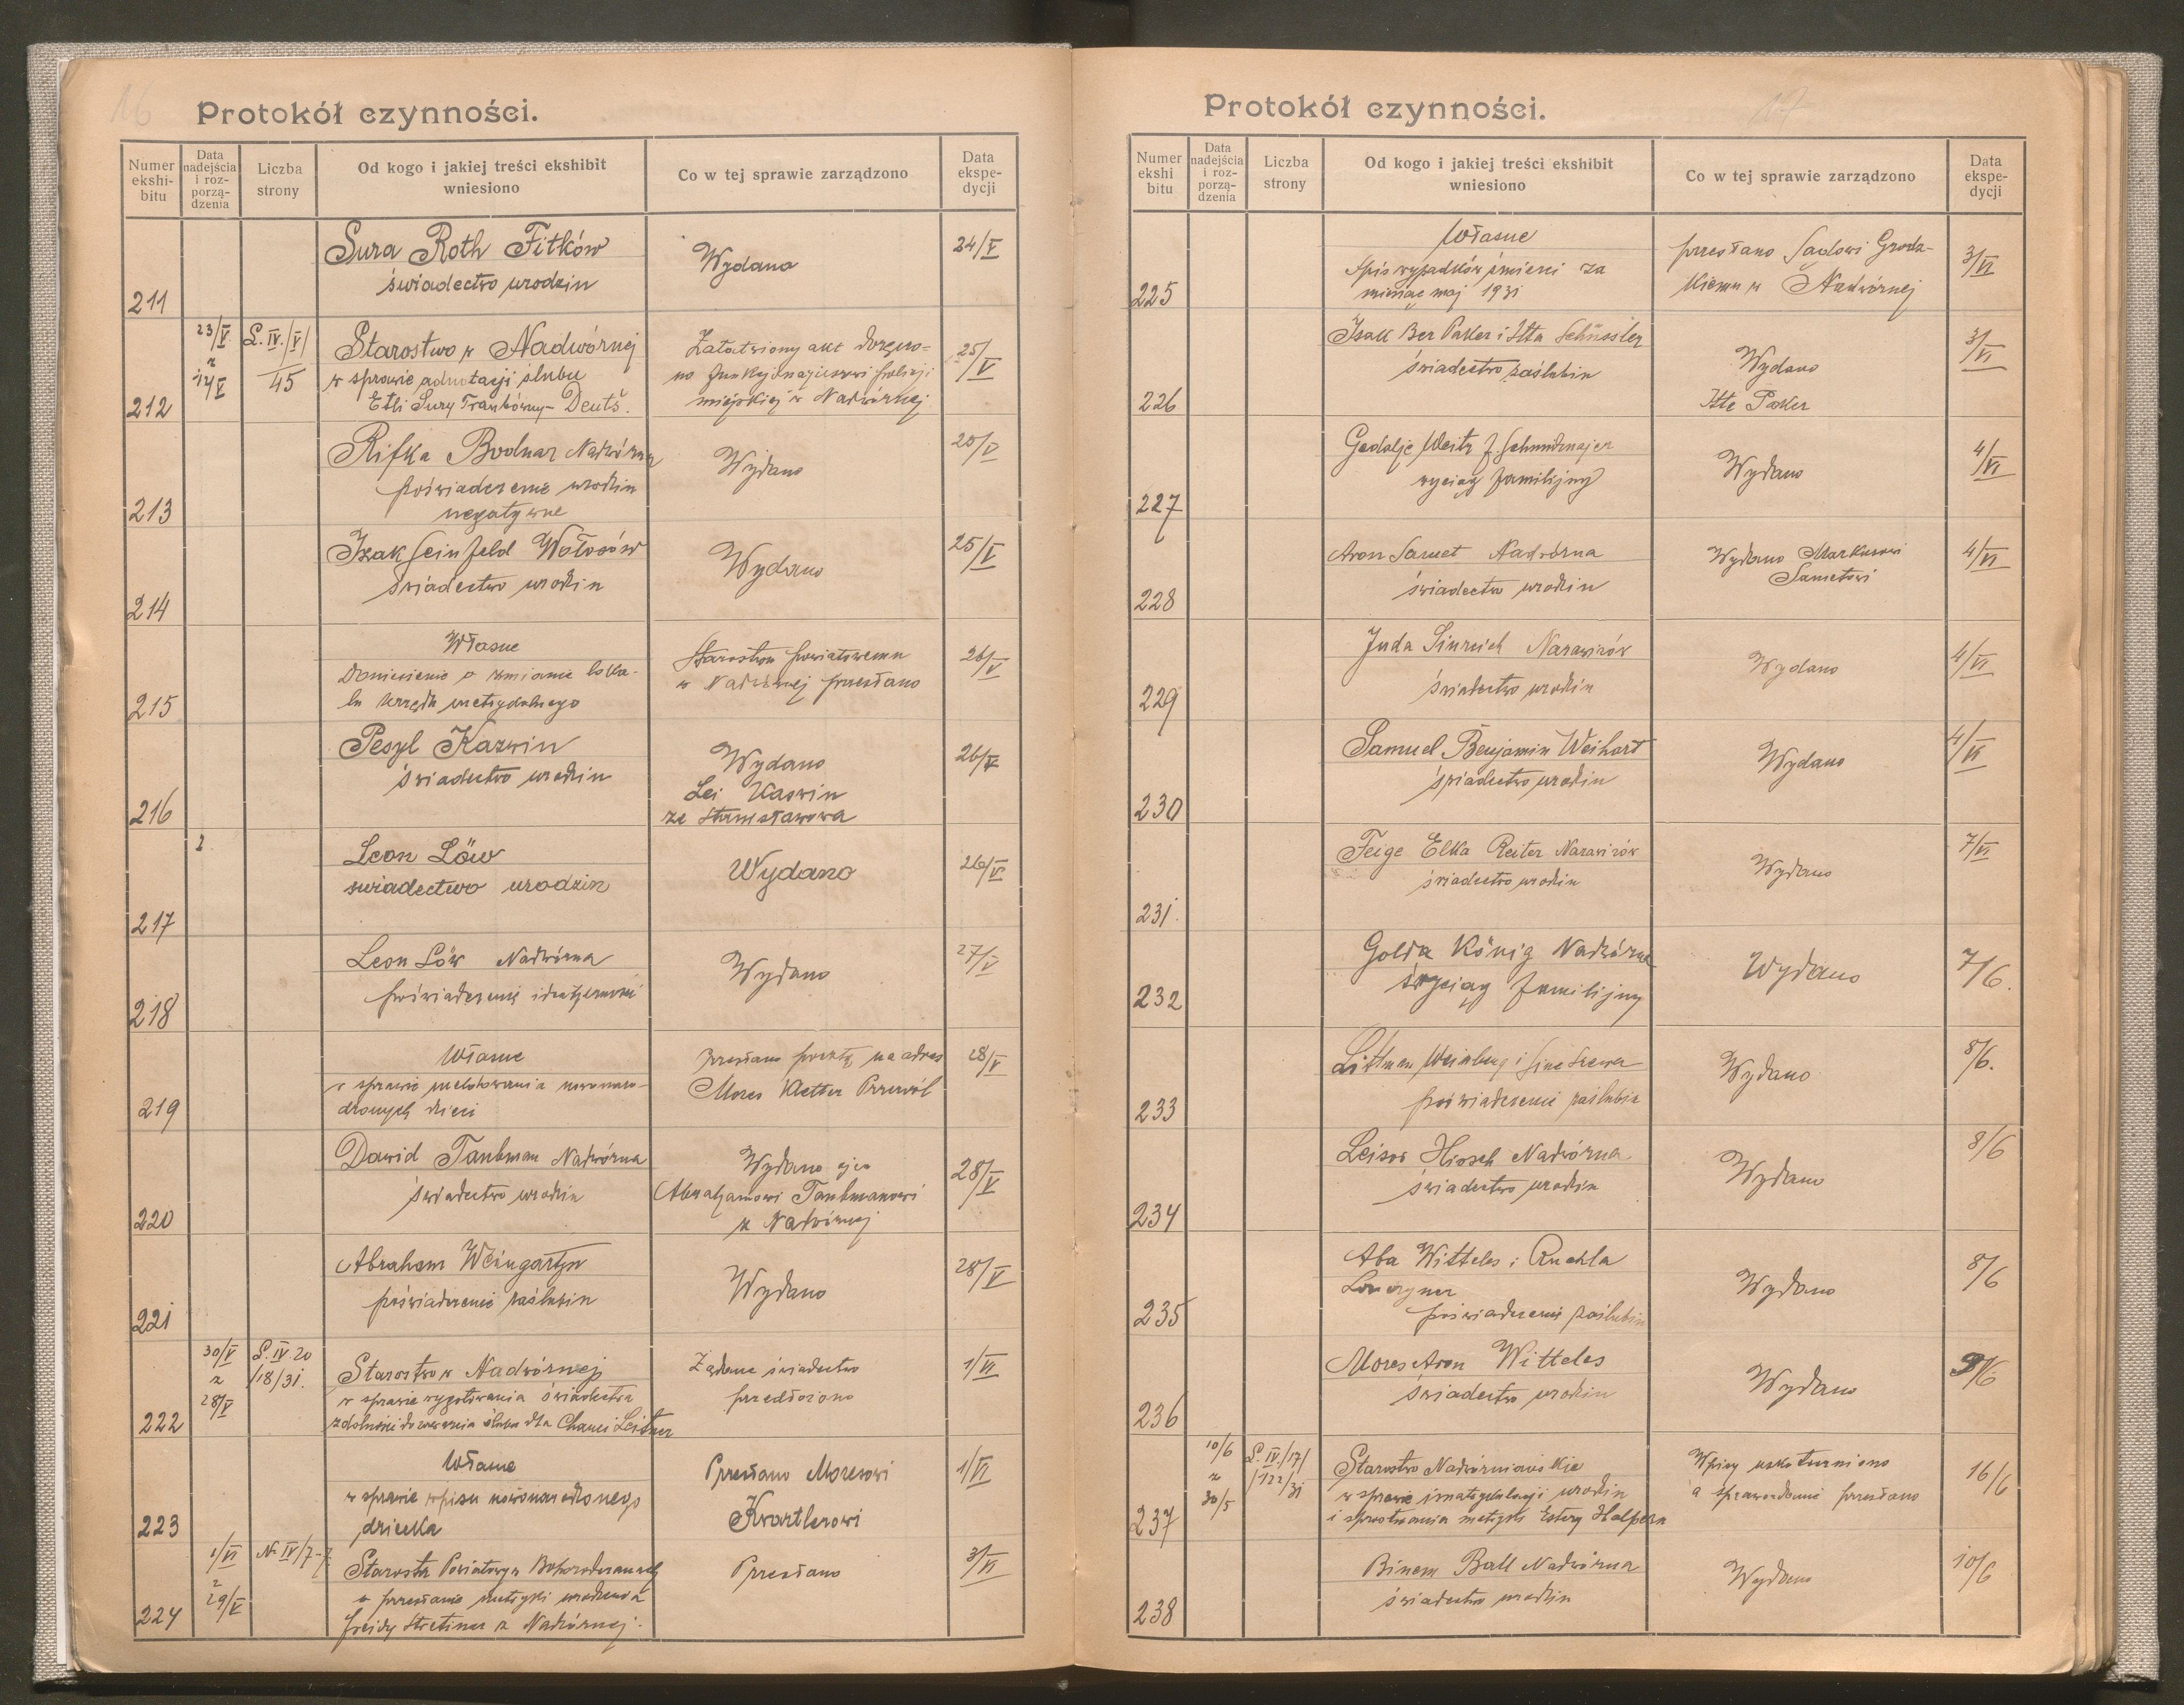 16
Protokół czynności.
Numer ekshi-bitu
Data nadejścia i roz-porzą-dzenia
Liczba strony
Od kogo i jakiej treści ekshibit wniesiono
Co w tej sprawie zarządzono
Data ekspe-dycji
Sura Roth Fitków
świadectwo urodzin
Wydano
24/V
211
23/V
z
14/V
L. IV./V/
45
Starostwo w Nadwórnej
w sprawie adnotacji ślubu
Etli Sury
Załatwiony akt
miejskiej w Nadwórnej
25/V
212
Rifka Bodnar Nadwórna
poświadczenie urodzin
negatywne
Wydano
25/V
213
Izak Feinfeld Wołosów
świadectwo urodzin
Wydano
25/V
214
Własne
Doniesienie o zmianie loka-
lu urzędu metrykalnego
Starostwu powiatowemu
w Nadwórnej przesłano
26/V
215
Pesyl Kazwin
świadectwo urodzin
Wydano
Lei Kaswin
ze Stanisławowa
26/V
216
Leon Löw
swiadectwo urodzin
Wydano
26/V
217
Leon Löw Nadwórna
poświadczenie
Wydano
27/V
218
Własne
w sprawie meldowania nowonaro-
dzonych dzieci
Przesłano pocztą na adres
Mozes Kletter
28/V
219
Dawid Taubman Nadwórna
świadectwo urodzin
Wydano ojcu
Abrahamowi Taubmanowi
w Nadwórnej
28/V
220
Abraham Weingartyn
poświadczenie zaślubin
Wydano
28/V
221
30/V
z
28/V
L. IV. 20
/18/31.
Starostwo w Nadwórnej
w sprawie wygotowania świadectwa
zdolności do zawarcia ślubu dla Chanci Leitner
Żądane świadectwo
przedłożono
1/VI
222
Własne
w sprawie wpisu nowonarodzonego
dziecka
Przesłano Mozesowi
Kwartlerowi
1/VI
223
1/VI
z
29/V
N. IV/7-7
Starosta Powiatowy w Bohorodczanach
o przesłanie metryki urodzenia
z Nadwórnej.
Przesłano
3/VI
224
17
Protokół czynności.
Numer ekshi bitu
Data nadejścia i roz-porzą-dzenia
Liczba strony
Od kogo i jakiej treści ekshibit wniesiono
Co w tej sprawie zarządzono
Data ekspe-dycji
Własne
Spis wypadków śmierci za
miesiąc maj 1931
przesłano Sądowi Grodz-
kiemu w Nadwórnej
3/VI
225
Izak Ber Paker i Itta Schüssler
świadectwo zaślubin
Wydano
Itte Paker
3/VI
226
Gedalje Weitz
wyciąg familijny
Wydano
4/VI
227
Aron Samet Nadwórna
świadectwo urodzin
Wydano Markusowi
Sametowi
4/VI
228
Juda Sinreich
świadectwo urodzin
Wydano
4/VI
229
Samuel Benjamin Weihart
świadectwo urodzin
Wydano
4/VI
230
Feige Elka Reiter
świadectwo urodzin
Wydano
7/VI
231.
Golda König Nadwórna
wyciąg familijny
Wydano
7/6.
232
Littman Weinberg i
poświadczenie zaślubin
Wydano
8/6.
233
Leisor Hirsch Nadwórna
świadectwo urodzin
Wydano
8/6
234
Aba Witteles i Ruchla
poświadczenie zaślubin
Wydano
8/6
235
Mozes Aron Witteles
świadectwo urodzin
Wydano
9/6
236
10/6
z
30/5
L. IV./17/
/122/31
Starostwo Nadwórniańskie
w sprawie imatrykulacji urodzin
i sprostowania metryki Estery Halpern
Wpisy uskuteczniono
a sprawozdanie przesłano
16/6
237
Binem Ball Nadwórna
świadectwo urodzin
Wydano
10/6
238